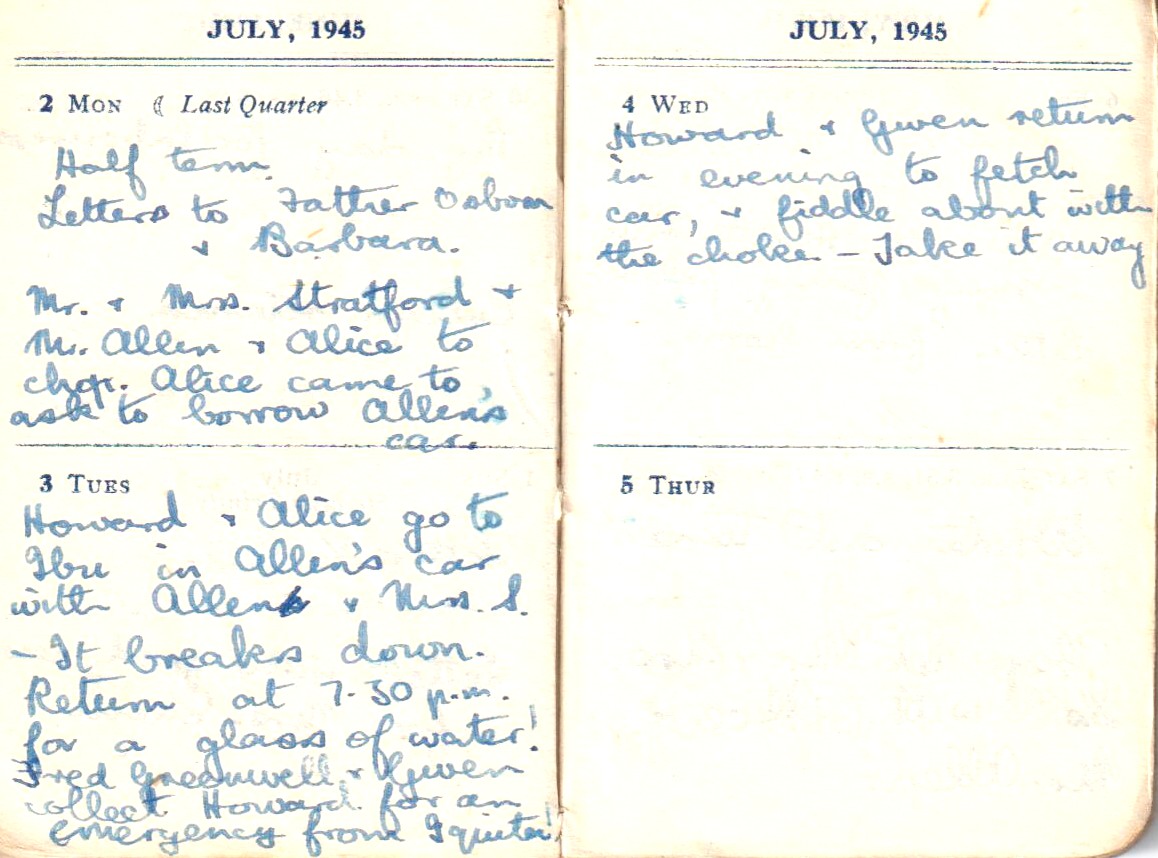 JULY, 1945
2 MON ☾ Last Quarter
Half term.
Letters to Father Osborn
& Barbara.
Mr. & Mrs. Stratford &
Mr. Allen & Alice to
chop. Alice came to
ask to borrow Allen's
car.
3 TUES
Howard & Alice go to
Ibu in Allen's car
with Allen & Mrs. S.
- It breaks down.
Return at 7-30 p.m.
for a glass of water!
Fred Greenwell & Gwen
collect Howard for an
emergency from
JULY, 1945
4 WED
Howard & Gwen return
in evening to fetch
car, & fiddle about with
the choke - Take it away
5 THUR